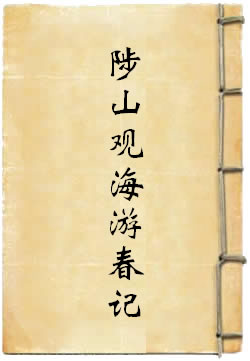 陟山观海游春记